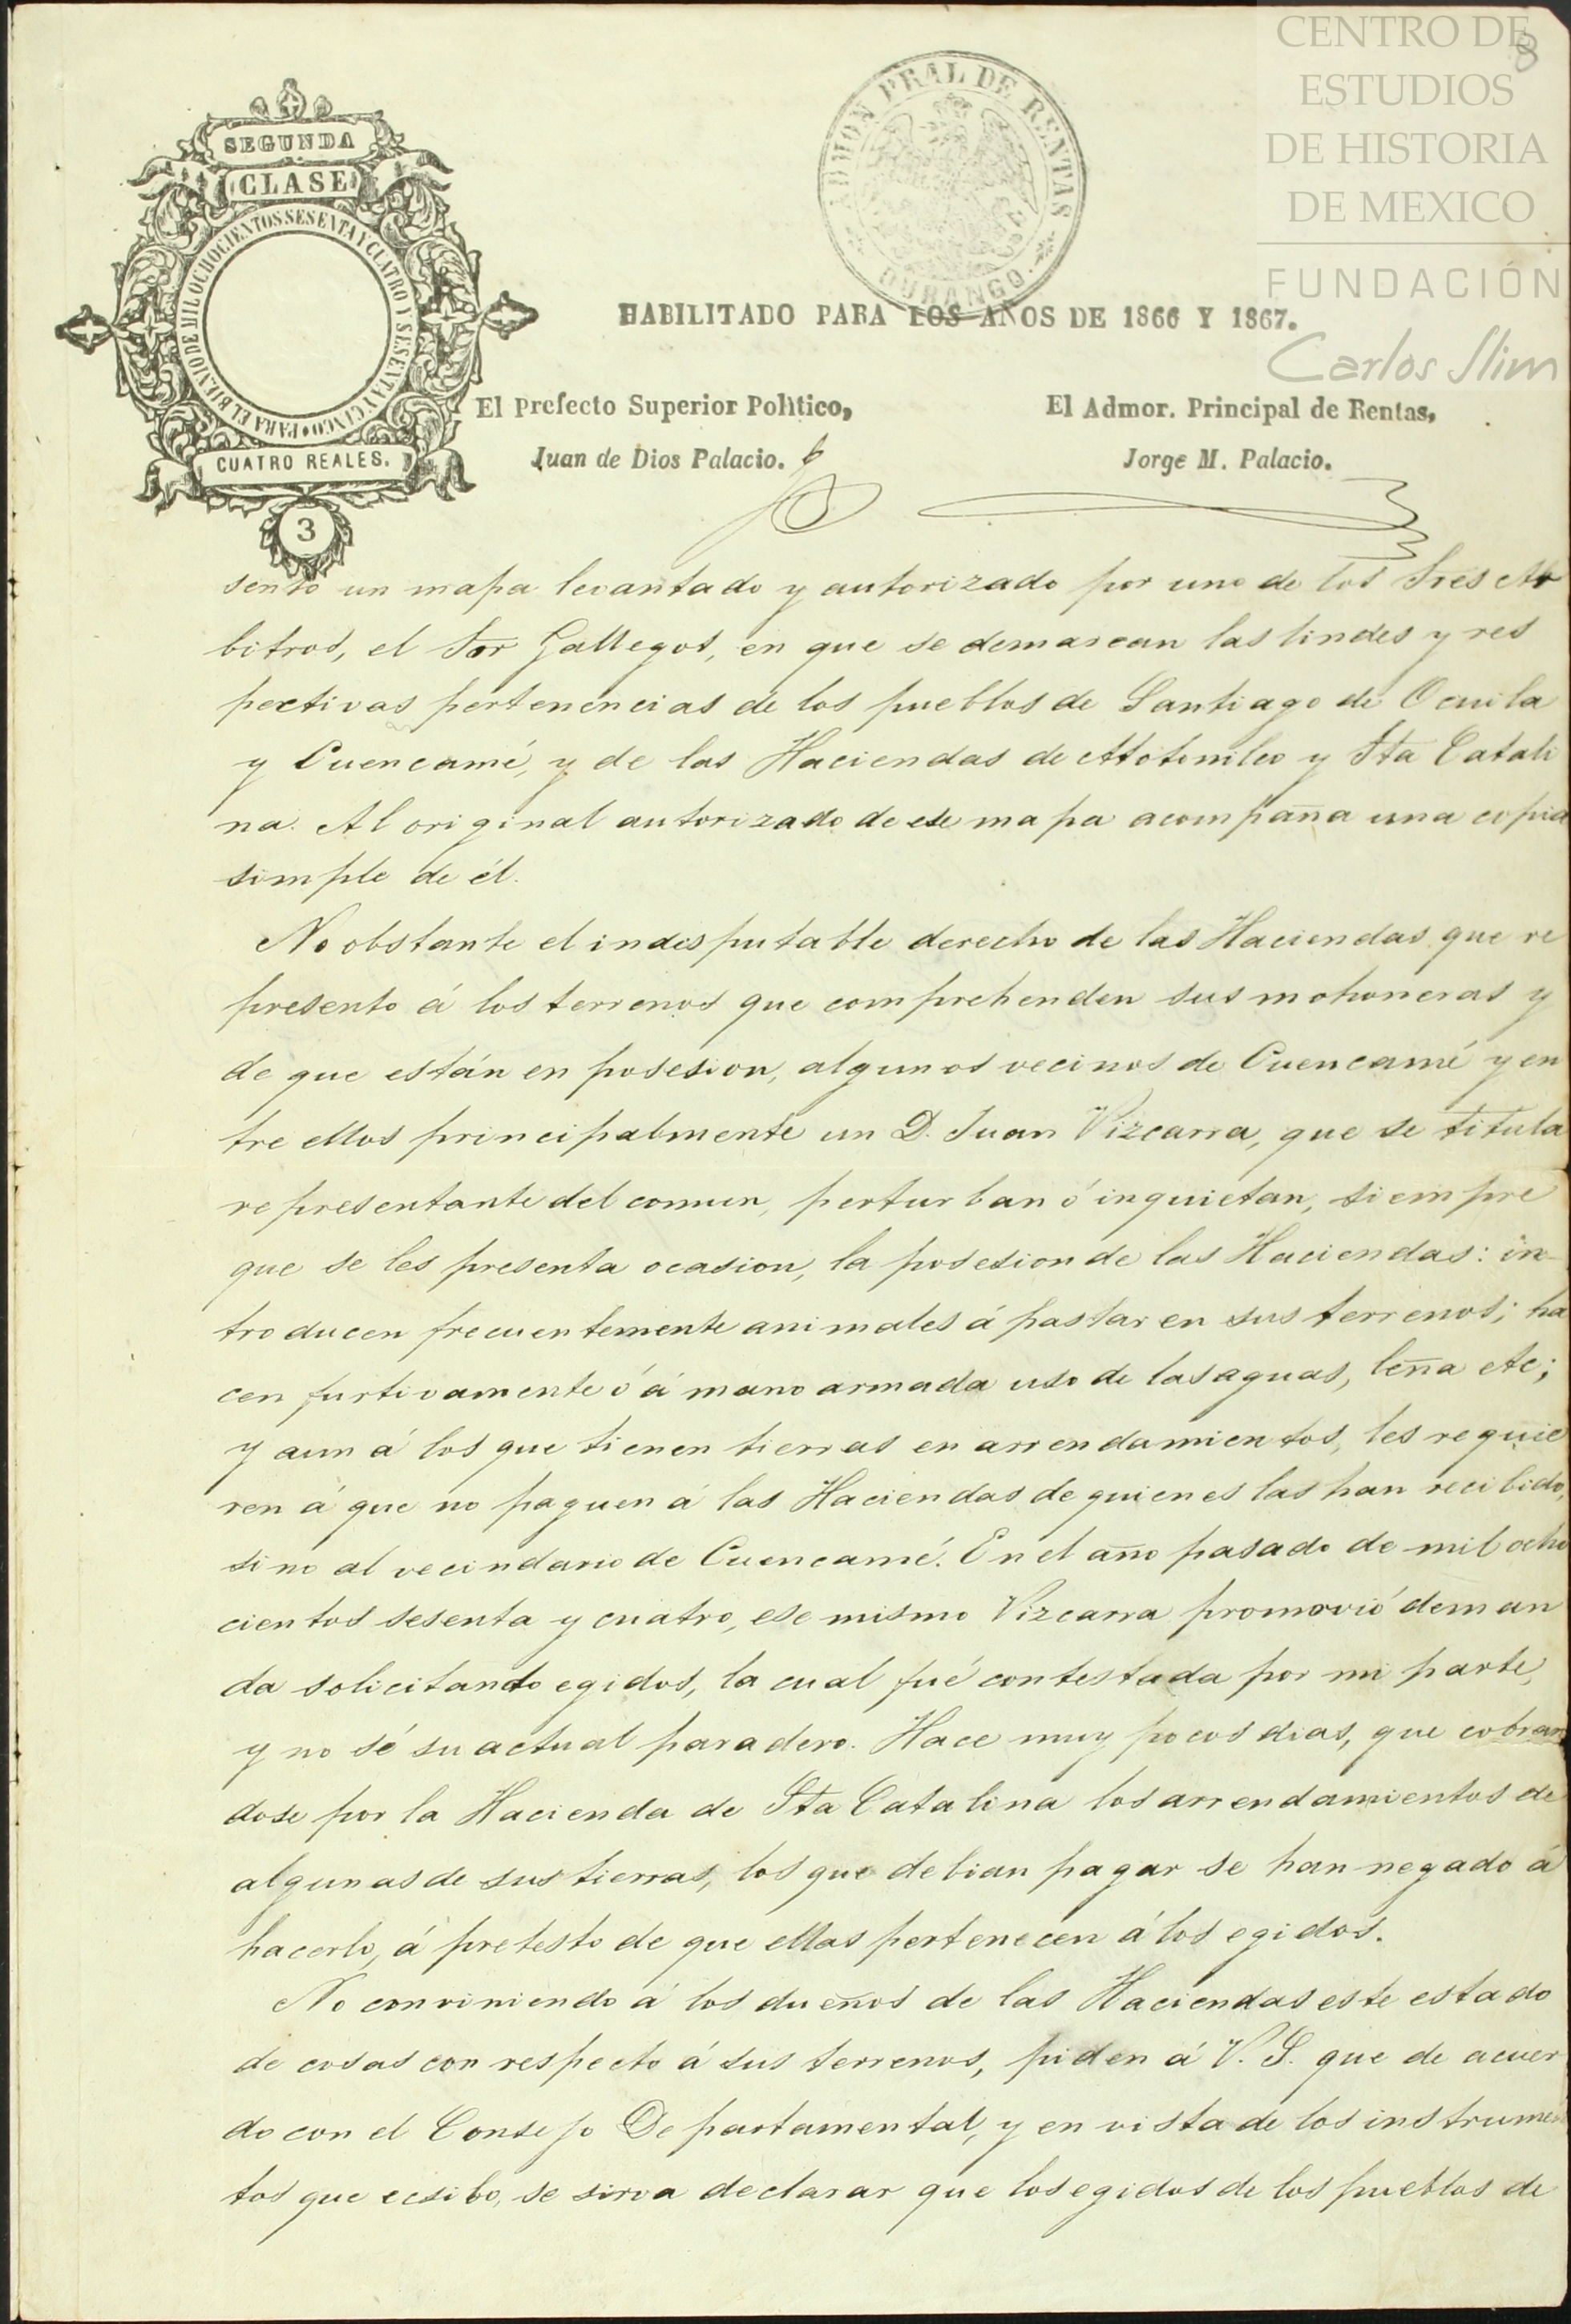 CENTRO DE
ESTUDIOS
DE HISTORIA
DE MEXICO
FUNDACIÓN
Carlos Slim
8
SEGUNDA
CLASE
PARA EL BIENIO DE MIL OCHOCIENTOS SESENTA Y CUATRO Y SESENTA Y CINCO
CUATRO REALES.
3
ADMON PRAL DE RENTAS
DURANGO.
HABILITADO PARA LOS AÑOS DE 1866 Y 1867.
El Prefecto Superior Politico,
El Admor. Principal de Rentas,
Juan de Dios Palacio.
Jorge M. Palacio.
sento un mapa levantado y autorizado por uno de los Sres Ar
bitros, el Sor Gallegos, en que se demarcan las lindes y res
pectivas pertenencias de los pueblos de Santiago de Ocuila
y Cuencamé, y de las Haciendas de Atotonilco y Sta Catali
na. Al original autorizado de ese mapa acompaña una copia
simple de él.
No obstante el indisputable derecho de las Haciendas que re
presento á los terrenos que comprehenden sus mohoneras y
de que están en posesion, algunos vecinos de Cuencamé y en
tre ellos principalmente un D. Juan Vizcarra, que se titula
representante del comun, perturban ó inquietan, siempre
que se les presenta ocasion, la posesion de las Haciendas: in-
troducen frecuentemente animales á pastar en sus terrenos; ha
cen furtivamente ó á mano armada uso de las aguas, leña etc;
y aun á los que tienen tierras en arrendamientos, les requie
ren á que no paguen á las Haciendas de quienes las han recibido,
sino al vecindario de Cuencamé. En el año pasado de mil ocho
cientos sesenta y cuatro, ese mismo Vizcarra promovió deman
da solicitando egidos, la cual fué contestada por mi parte,
y no sé su actual paradero. Hace muy pocos dias, que cobran
dose por la Hacienda de Sta Catalina los arrendamientos de
algunas de sus tierras, los que debian pagar se han negado á
hacerlo, á pretesto de que ellas pertenecen á los egidos.
No conviniendo á los dueños de las Haciendas este estado
de cosas con respecto á sus terrenos, piden á V. S. que de acuer
do con el Consejo Departamental, y en vista de los instrumen
tos que ecsibo, se sirva declarar que los egidos de los pueblos de